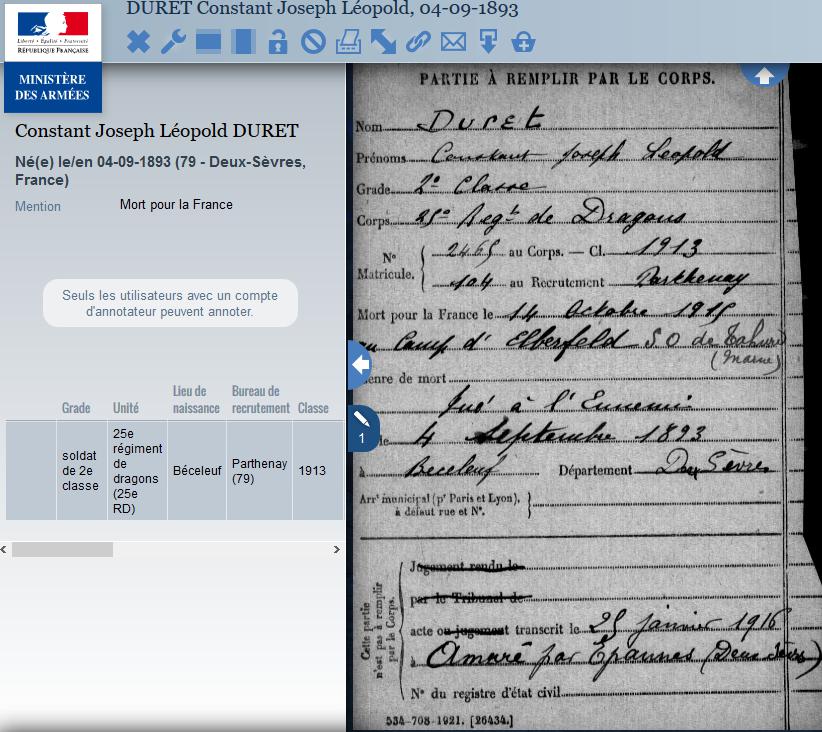 DURET Constant Joseph Léopold, 04-09-1893
Liberté • Égalité • Fraternité
RÉPUBLIQUE FRANÇAISE
MINISTÈRE
DES ARMÉES
Constant Joseph Léopold DURET
Né(e) le/en 04-09-1893 (79 - Deux-Sèvres,
France)
Mention Mort pour la France
Seuls les utilisateurs avec un compte
d'annotateur peuvent annoter.
Grade Unité Lieu de naissance Bureau de recrutement Classe
soldat de 2e classe 25e régiment de dragons (25e RD) Béceleuf Parthenay (79) 1913
1
PARTIE À REMPLIR PAR LE CORPS.
Nom Duret
Prénoms Constant Joseph Léopold
Grade 2e Classe
Corps 25e Regt de Dragons
No Matricule.
2465 au Corps. — Cl. 1913
104 au Recrutement Parthenay
Mort pour la France le 14 Octobre 1915
au Camp d'Elberfeld S O de Tahure
(Marne)
enre de mort
Tué à l'Ennemi
le 4 Septembre 1893
à Beceleuf Département Deux Sèvres
Arrt municipal (pr Paris et Lyon),
à défaut rue et No.
Cette partie
n'est pas à remplir
par le Corps.
Jugement rendu le
par le Tribunal de
acte ou jugement transcrit le 25 janvier 1916
à Amuré par Epannes (Deux Sèvres)
No du registre d'état civil
534-708-1921. [26434.]